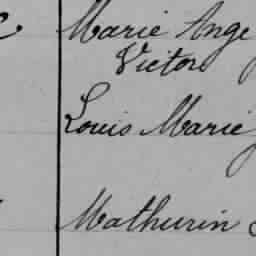 Marie Ange
Victor
Louis Marie
Mathurin